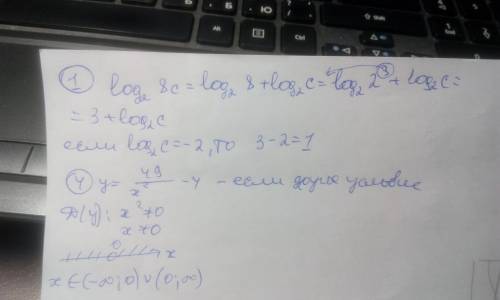 ① log₂ 8c = log₂ 8 + log₂c = log₂ 2³ + log₂c =
= 3 + log₂c
если log₂c = -2, то 3-2=1
④ y = 49/x² - 4 - если условие
D(y): x² ≠ 0
x ≠ 0
0 x
x ∈ (-∞; 0) ∪ (0; ∞)